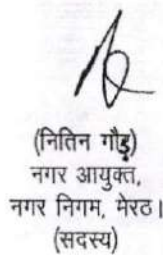 (नितिन गौड़)
नगर आयुक्त,
नगर निगम, मेरठ।
(सदस्य)